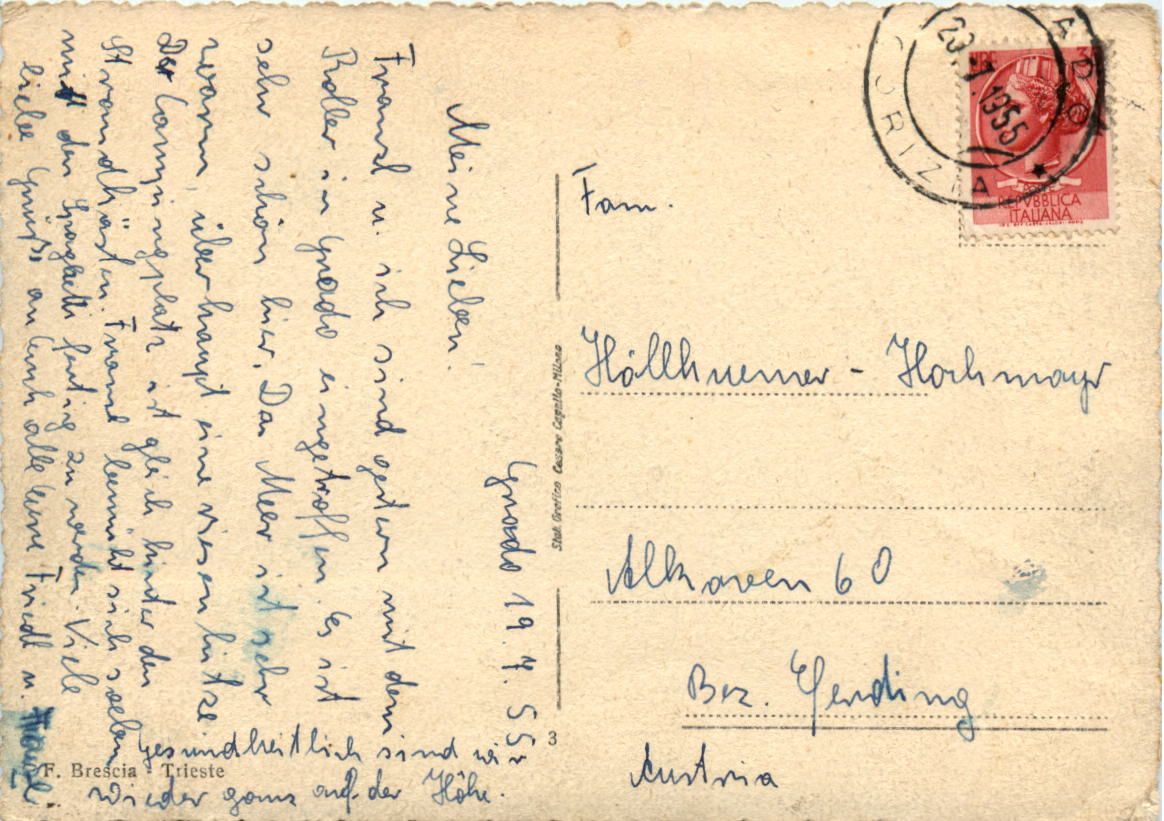 Grado 19.7.55
Meine Lieben!
Franzl u. ich sind gestern mit dem
Roller in Grado eingetroffen. Es ist
sehr schön hier. Das Meer ist sehr
warm, überhaupt eine riesen hitze.
Der Campingplatz ist gleich hinter den
Strandkästen. Franzl bemüht sich soeben
mit den Spaghetti fertig zu werden. Viele
liebe Grüße an Euch alle Eure Friedl u. Franzl
Gesundheitlich sind wir
wieder ganz auf der Höhe.
F. Brescia - Trieste
3
Stab. Grafico Cesare Capello-Milano
Fam.
Höllhuemer - Hochmayr
Alkoven 60
Bez. Eferding
Austria
GORIZIA
1955
LIRE
REPVBBLICA
ITALIANA